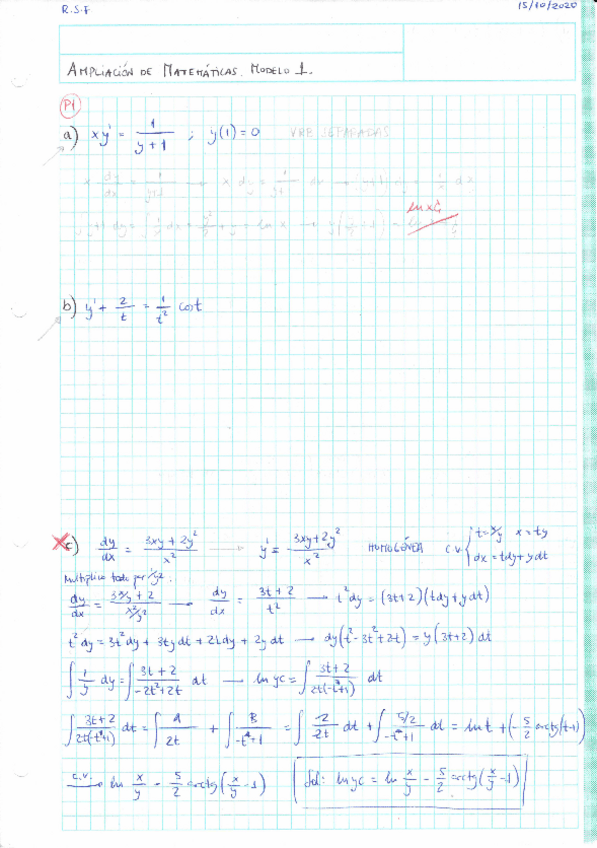 R.S.F 15/10/2020
AMPLIACIÓN DE MATEMÁTICAS. MODELO 1.
P1
a) xy' = 1/(y+1) ; y(1) = 0 VRB SEPARADAS
x dy/dx = 1/(y+1) → x dy = 1/(y+1) dx
ln x
b) y' + 2/t = 1/t² cost
c) dy/dx = (3xy + 2y²)/x² y' = - (3xy+2y²)/x² HOMOGÉNEA C.V. { t = x/y x = ty
dx = tdy + y dt
Multiplico todo por 1/y².
dy/dx = (3x/y + 2)/(x²/y²) → dy/dx = (3t + 2)/t² → t²dy = (3t+2)(tdy + ydt)
t²dy = 3t²dy + 3tydt + 2tdy + 2y dt → dy(t² - 3t² + 2t) = y(3t+2) dt
∫ 1/y dy = ∫ (3t + 2)/(-2t² + 2t) dt → ln yc = ∫ (3t + 2)/(2t(-t+1)) dt
∫ (3t + 2)/(2t(-t+1)) dt = ∫ A/2t + ∫ B/(-t+1) = ∫ 2/2t dt + ∫ (5/2)/(-t+1) dt = ln t + (- 5/2 arctg(t-1))
C.V. → ln x/y - 5/2 arctg(x/y - 1) Sol: ln yc = ln x/y - 5/2 arctg(x/y - 1)